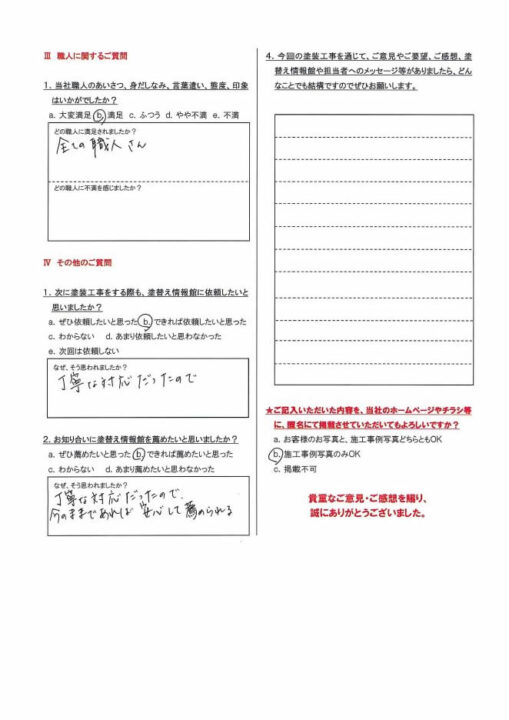 Ⅲ 職人に関するご質問
1. 当社職人のあいさつ、身だしなみ、言葉遣い、態度、印象
はいかがでしたか？
a. 大変満足 b. 満足 c. ふつう d. やや不満 e. 不満
どの職人に満足されましたか？
全ての職人さん
どの職人に不満を感じましたか？
Ⅳ その他のご質問
1. 次に塗装工事をする際も、塗替え情報館に依頼したいと
思いましたか？
a. ぜひ依頼したいと思った b. できれば依頼したいと思った
c. わからない d. あまり依頼したいと思わなかった
e. 次回は依頼しない
なぜ、そう思われましたか？
丁寧な対応だったので
2. お知り合いに塗替え情報館を薦めたいと思いましたか？
a. ぜひ薦めたいと思った b. できれば薦めたいと思った
c. わからない d. あまり薦めたいと思わなかった
なぜ、そう思われましたか？
丁寧な対応だったので、
今のままであれば 安心して薦められる
4. 今回の塗装工事を通じて、ご意見やご要望、ご感想、塗
替え情報館や担当者へのメッセージ等がありましたら、どん
なことでも結構ですのでぜひお願いします。
★ご記入いただいた内容を、当社のホームページやチラシ等
に、匿名にて掲載させていただいてもよろしいですか？
a. お客様のお写真と、施工事例写真どちらともOK
b. 施工事例写真のみOK
c. 掲載不可
貴重なご意見・ご感想を賜り、
誠にありがとうございました。